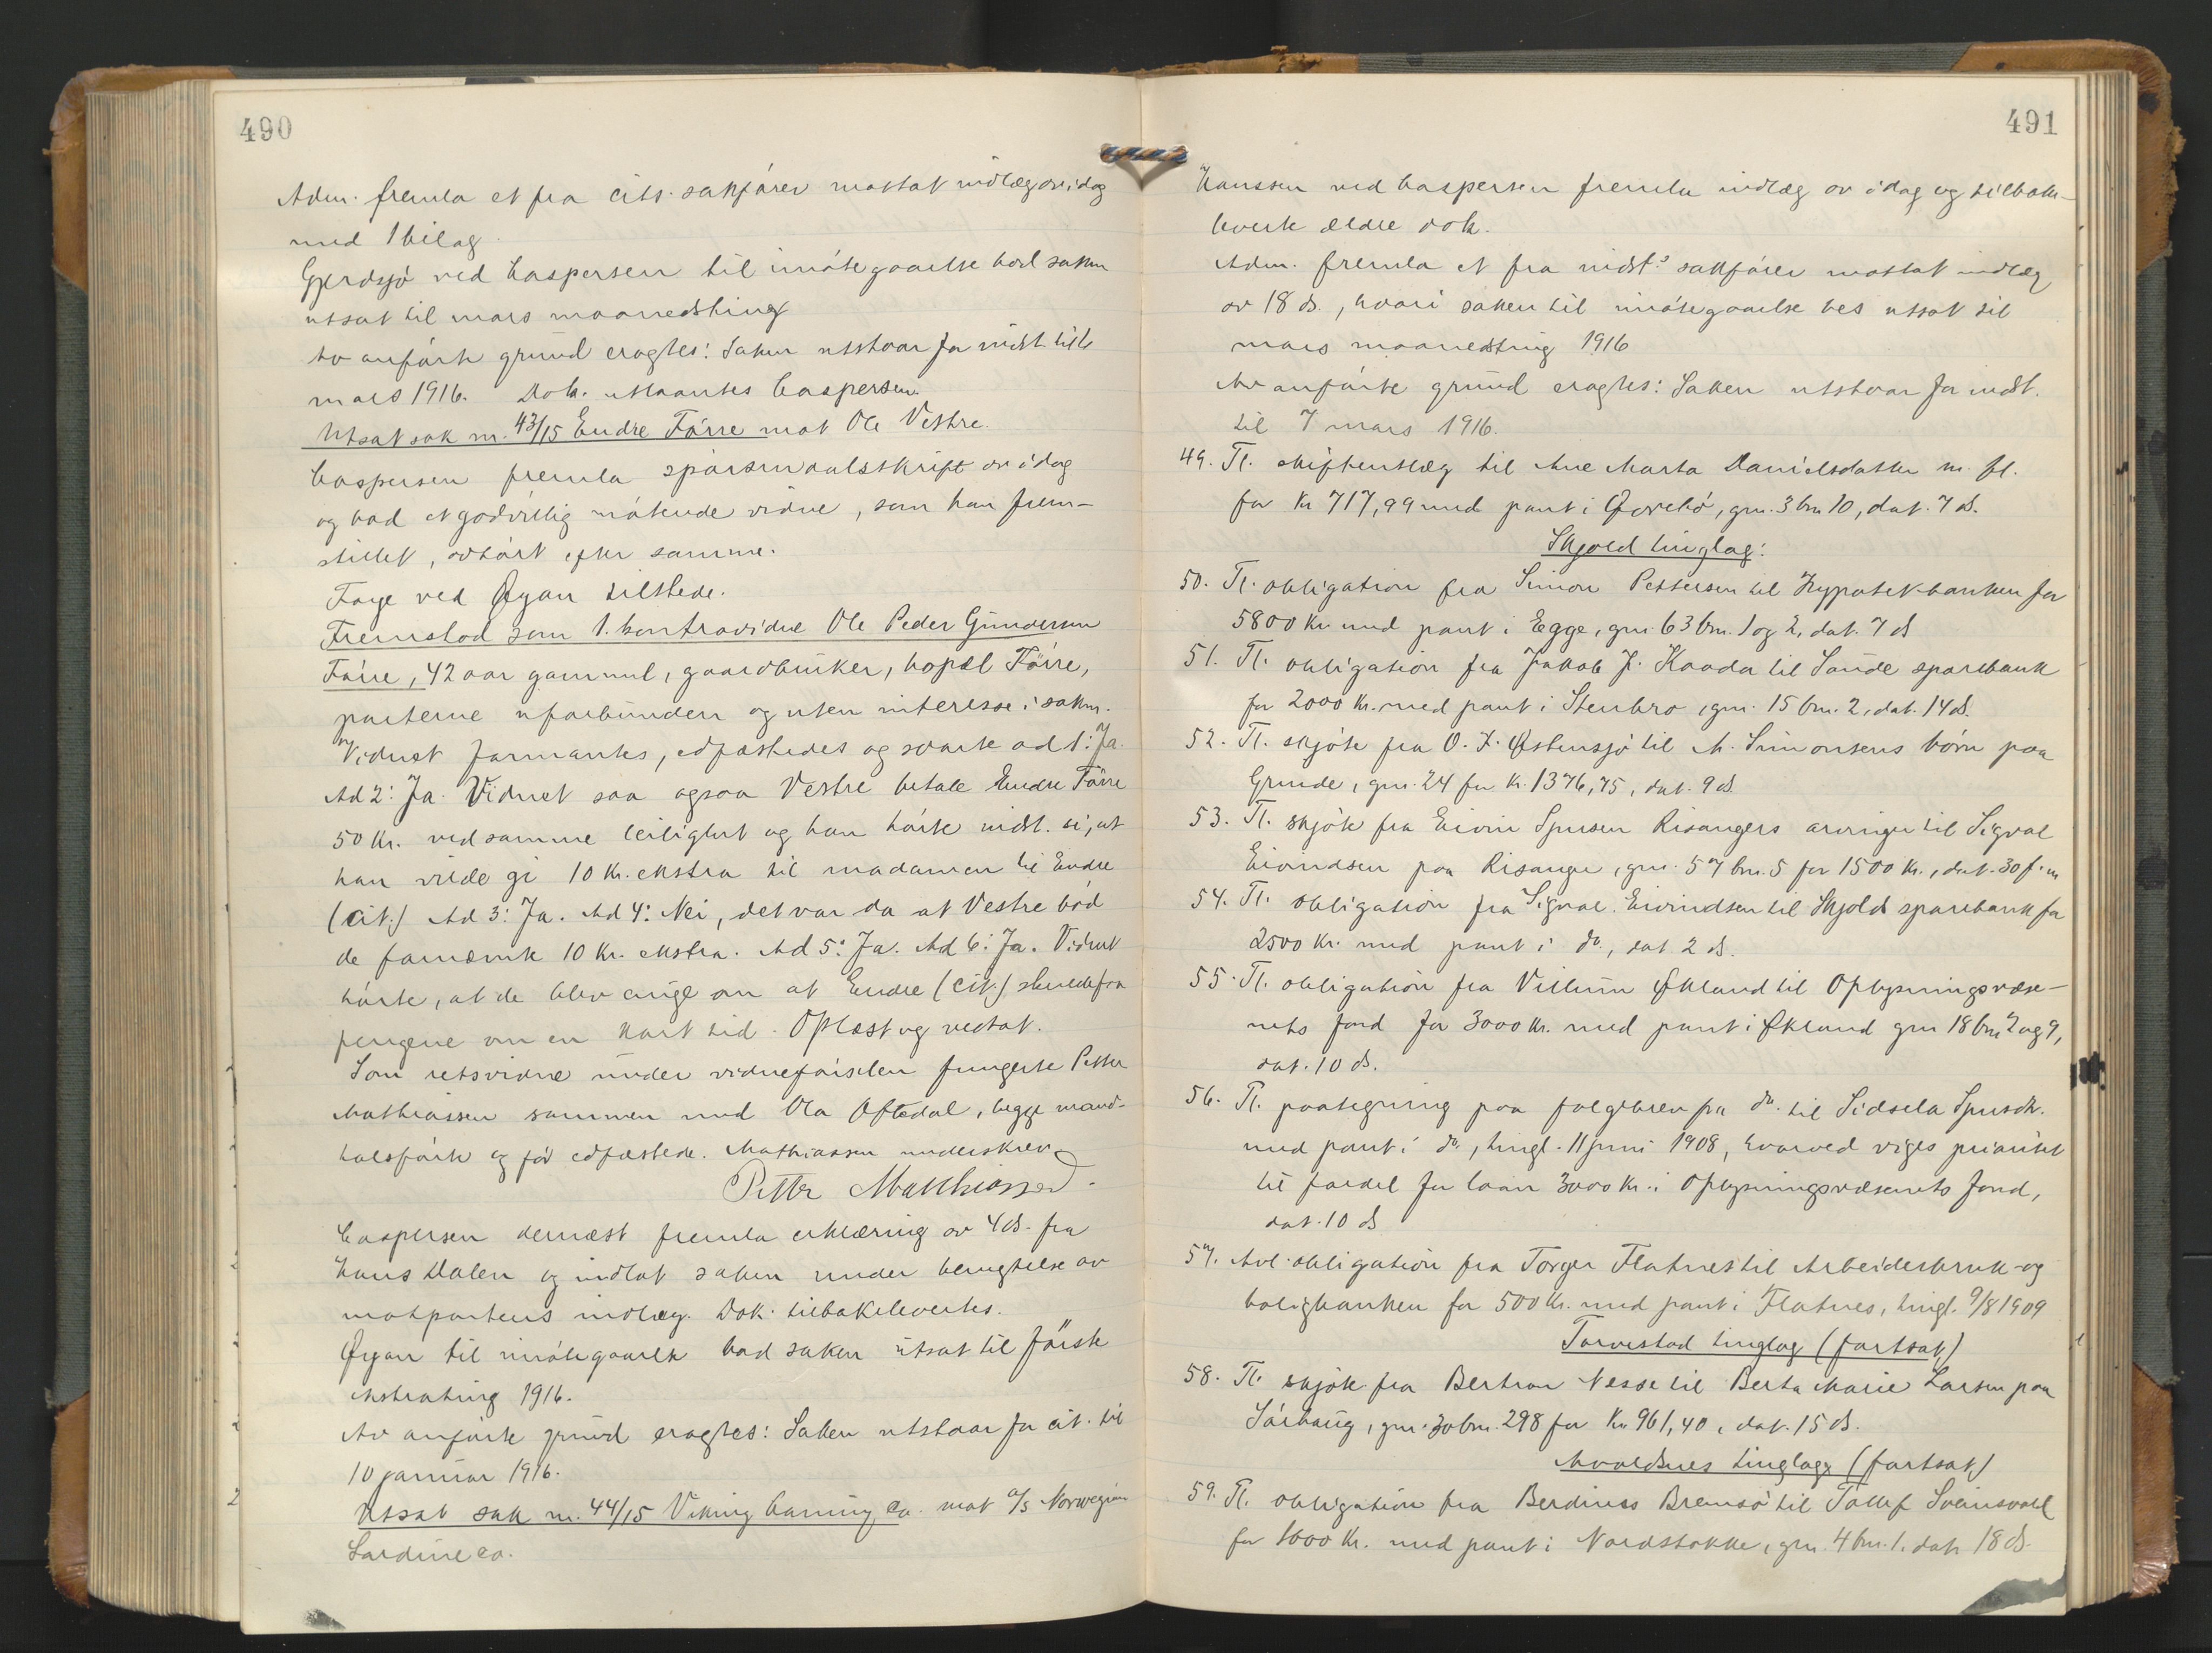 490
Adm. fremla et fra cits. sakfører mottat indlæg av idag
med 1 bilag.
Gjerdsjø ved Caspersen til imøtegaaelse bad saken
utsat til mars maanedsting
Av anførte grund eragtes: Saken utstaar for indst. til
mars 1916. Dok. utlaantes Caspersen.
Utsat sak nr. 43/15 Endre Førre mot Ole Vestre.
Caspersen fremla spørsmaalsskrift av idag
og bad et godvillig møtende vidne, som han frem-
stillet, avhørt efter samme.
Foye ved Øyan tilstede.
Fremstod som 1. kontravidne Ole Peder Gundersen
Førre, 42 aar gammel, gaardbruker, bopæl Førre,
parterne uforbunden og uten interesse i saken.
Vidnet formantes, edfæstedes og svarte ad 1: Ja.
Ad 2: Ja. Vidnet saa ogsaa Vestre betale Endre Førre
50 kr. ved samme leilighet og han hørte indst. si, at
han vilde gi 10 kr. ekstra til madamen til Endre
(cit.) Ad 3: Ja. Ad 4: Nei, det var da at Vestre bød
de fornævnte 10 kr. ekstra. Ad 5: Ja. Ad 6: Ja. Vidnet
hørte, at de blev enige om at Endre (cit.) skulde faa
pengene om en kort tid. Oplæst og vedtat.
Som retsvidne under vidneførselen fungerte Petter
Mathiassen sammen med Ola Oftedal, begge mand-
talsførte og før edfæstede. Mathiassen underskrev
Petter Matthiassen.
Caspersen dernæst fremla erklæring av 4 ds. fra
Hans Dalen og indlot saken under benegtelse av
motpartens indlæg. Dok. tilbakelevertes.
Øyan til imøtegaaelse bad saken utsat til første
ekstrating 1916.
Av anførte grund eragtes: Saken utstaar for cit. til
10 januar 1916.
Utsat sak nr. 44/15 Viking Caning Co. mot A/S Norwegian
Sardine co.
491
Hanssen ved Caspersen fremla indlæg av idag og tilbake-
leverte ældre dok.
Adm. fremla et fra indst.s sakfører mottat indlæg
av 18 ds., hvori saken til imøtegaaelse bes utsat til
mars maanedsting 1916
Av anførte grund eragtes: Saken utstaar for indst.
til 7 mars 1916.
49. Tl. skifteutlæg til Ane Marta Danielsdatter m. fl.
for kr 717,99 med pant i Qvelø, gnr. 3 bnr 10, dat. 7 ds.
Skjold tinglag:
50. Tl. obligation fra Simon Pettersen til Hypotekbanken for
5800 kr. med pant i Egge, gnr. 63 bnr. 1 og 2, dat. 7 ds
51. Tl. obligation fra Jakob J. Kaada til Sande sparebank
for 2000 kr. med pant i Stenbro, gnr. 15 bnr. 2, dat. 14 ds.
52. Tl. skjøte fra O. J. Østensjø til M. Simonsens børn paa
Grinde, gnr. 24 for kr. 1376,75, dat. 9 ds.
53. Tl. skjøte fra Eivin Spersen Risangers arvinger til Sigval
Eivindsen paa Risanger, gnr. 57 bnr. 5 for 1500 kr., dat. 30 f. m
54. Tl. obligation fra Sigval Eivindsen til Skjold sparebank for
2500 kr. med pant i do., dat. 2 ds.
55. Tl. obligation fra Villum Økland til Oplysningsvæse-
nets fond for 3000 kr. med pant i Økland gnr 18 bnr 2 og 9,
dat. 10 ds.
56. Tl. paategning paa følgebrev fra do. til Sidsela
med pant i do., tingl. 11 juni 1908, hvorved viges prioritet
til fordel for laan 3000 kr. i Oplysningsvæsenets fond,
dat. 10 ds
57. Avl. obligation fra Torger Flatnes til Arbeiderbruk- og
boligbanken for 500 kr. med pant i Flatnes, tingl. 9/8 1909
Torvestad tinglag (fortsat)
58. Tl. skjøte fra Bertran Nesse til Berta Marie Larsen paa
Sørhaug, gnr. 30 bnr. 298 for kr 961,40, dat. 15 ds.
Avaldsnes tinglag (fortsat)
59. Tl. obligation fra Berdines Bremsø til Tollef Svinsvoll
for 1600 kr. med pant i Nordstokke, gnr. 4 bnr. 1, dat. 18 ds.